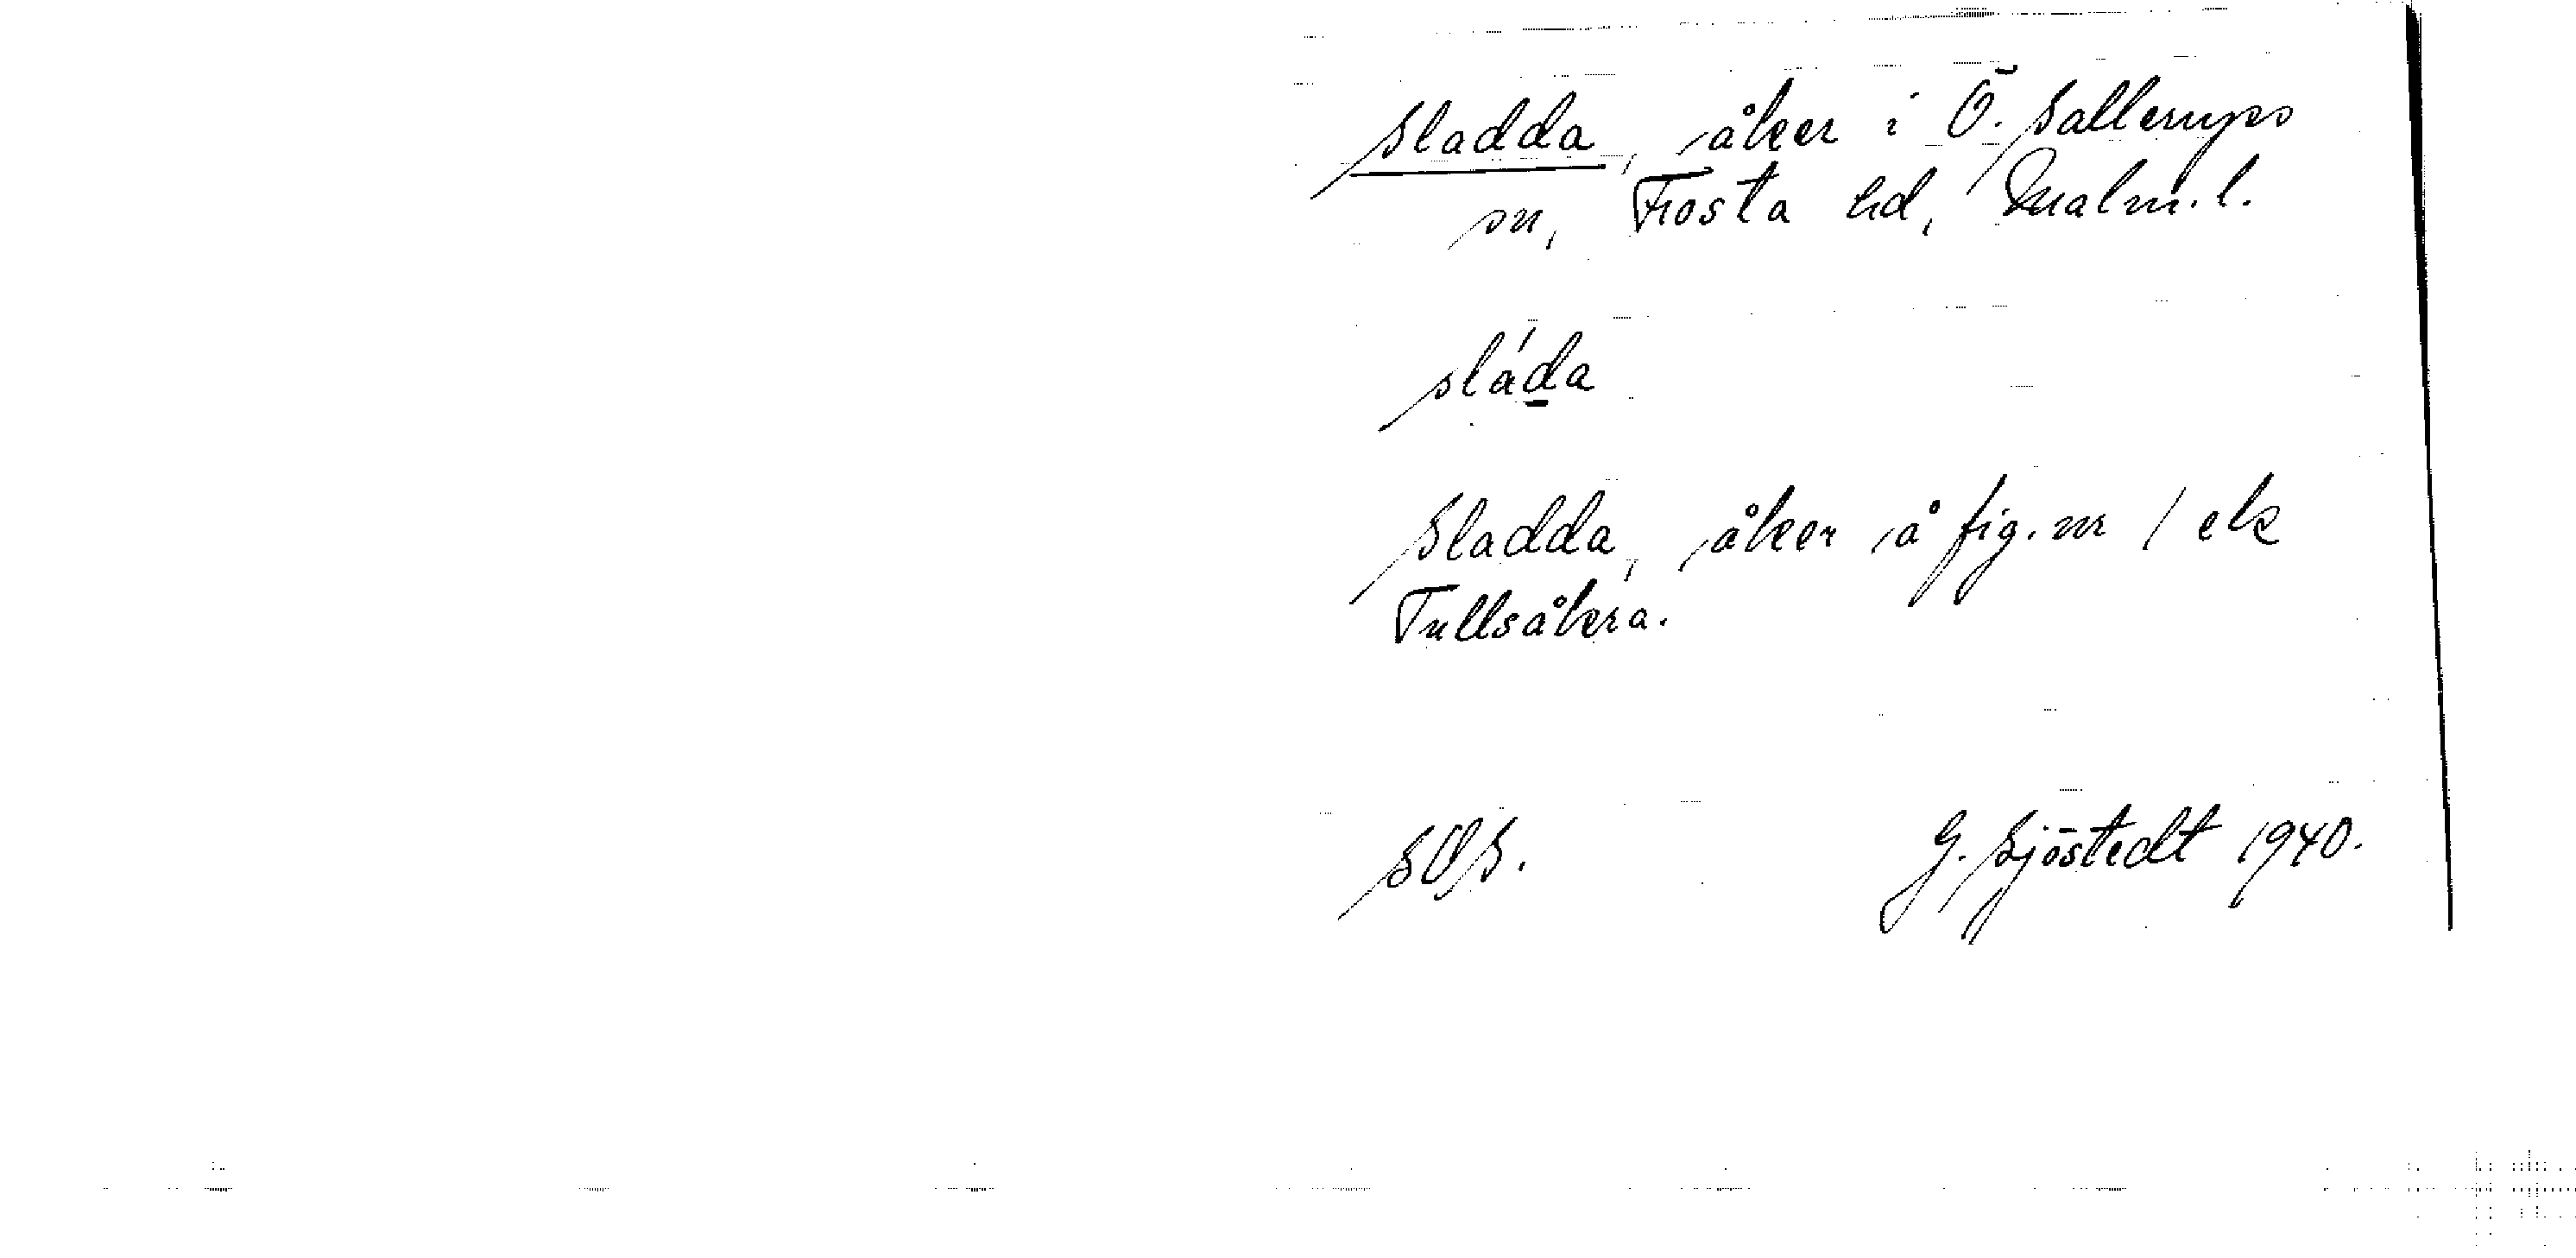 Sladda, åker i Ö. Sallerups
sn, Frosta hd, Malm. l.
sláda
Sladda, åker å fig. nr 1 ek
Tullsåkra.
SOS. G. Sjöstedt 1940.